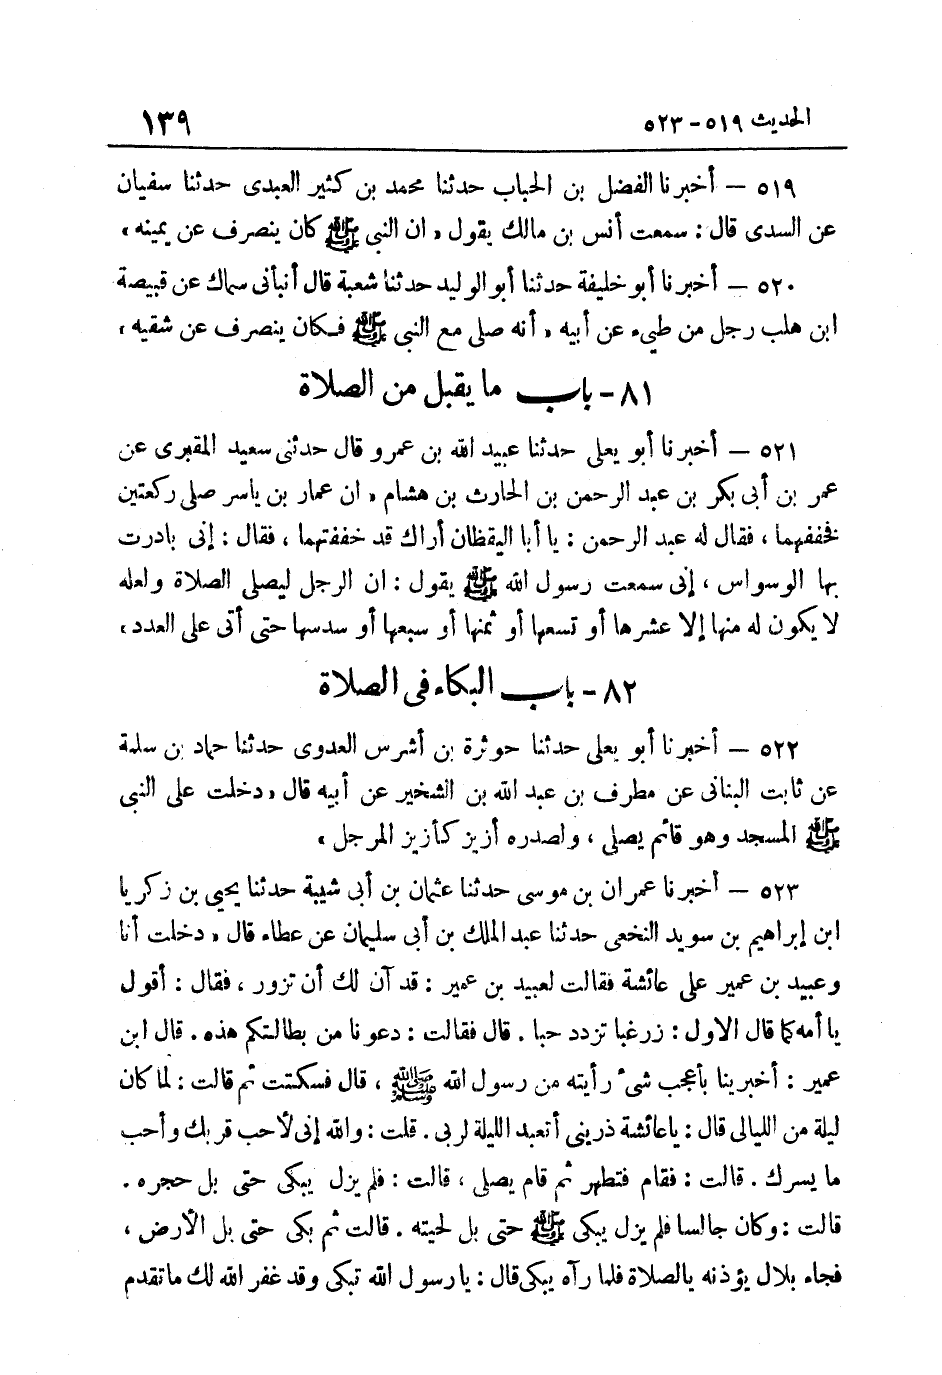 الحديث ٥١٩ - ٥٢٣
١٣٩
٥١٩ — أخبرنا الفضل بن الحباب حدثنا محمد بن كثير العبدى حدثنا سفيان
عن السدى قال : سمعت أنس بن مالك يقول « ان النبى ﷺ كان ينصرف عن يمينه »
٥٢٠ — أخبرنا أبو خليفة حدثنا أبو الوليد حدثنا شعبة قال أنبأنى سماك عن قبيصة
ابن هلب رجل من طيىء عن أبيه « أنه صلى مع النبى ﷺ فكان ينصرف عن شقيه »
٨١ - باب ما يقبل من الصلاة
٥٢١ — أخبرنا أبو يعلى حدثنا عبيد الله بن عمرو قال حدثنى سعيد المقبرى عن
عمر بن أبى بكر بن عبد الرحمن بن الحارث بن هشام « ان عمار بن ياسر صلى ركعتين
فخففهما ، فقال له عبد الرحمن : يا أبا اليقظان أراك قد خففتهما ، فقال : إنى بادرت
بها الوسواس ، إنى سمعت رسول الله ﷺ يقول : ان الرجل ليصلى الصلاة ولعله
لا يكون له منها إلا عشرها أو تسعها أو ثمنها أو سبعها أو سدسها حتى أتى على العدد »
٨٢ - باب البكاء فى الصلاة
٥٢٢ — أخبرنا أبو يعلى حدثنا حوثرة بن أشرس العدوى حدثنا حماد بن سلمة
عن ثابت البنانى عن مطرف بن عبد الله بن الشخير عن أبيه قال « دخلت على النبى
ﷺ المسجد وهو قائم يصلى ، ولصدره أزيز كأزيز المرجل »
٥٢٣ — أخبرنا عمران بن موسى حدثنا عثمان بن أبى شيبة حدثنا يحيى بن زكريا
ابن إبراهيم بن سويد النخعى حدثنا عبد الملك بن أبى سليمان عن عطاء قال « دخلت أنا
وعبيد بن عمير على عائشة فقالت لعبيد بن عمير : قد آن لك أن تزور ، فقال : أقول
يا أمه كما قال الاول : زر غبا تزدد حبا . قال فقالت : دعونا من بطالتكم هذه . قال ابن
عمير : أخبرينا بأعجب شىء رأيته من رسول الله ﷺ ، قال فسكتت ثم قالت : لما كان
ليلة من الليالى قال : يا عائشة ذرينى أتعبد الليلة لربى . قلت : والله إنى لأحب قربك وأحب
ما يسرك . قالت : فقام فتطهر ثم قام يصلى ، قالت : فلم يزل يبكى حتى بل حجره .
قالت : وكان جالسا فلم يزل يبكى ﷺ حتى بل لحيته . قالت ثم بكى حتى بل الأرض ،
فجاء بلال يؤذنه بالصلاة فلما رآه يبكى قال : يا رسول الله تبكى وقد غفر الله لك ما تقدم